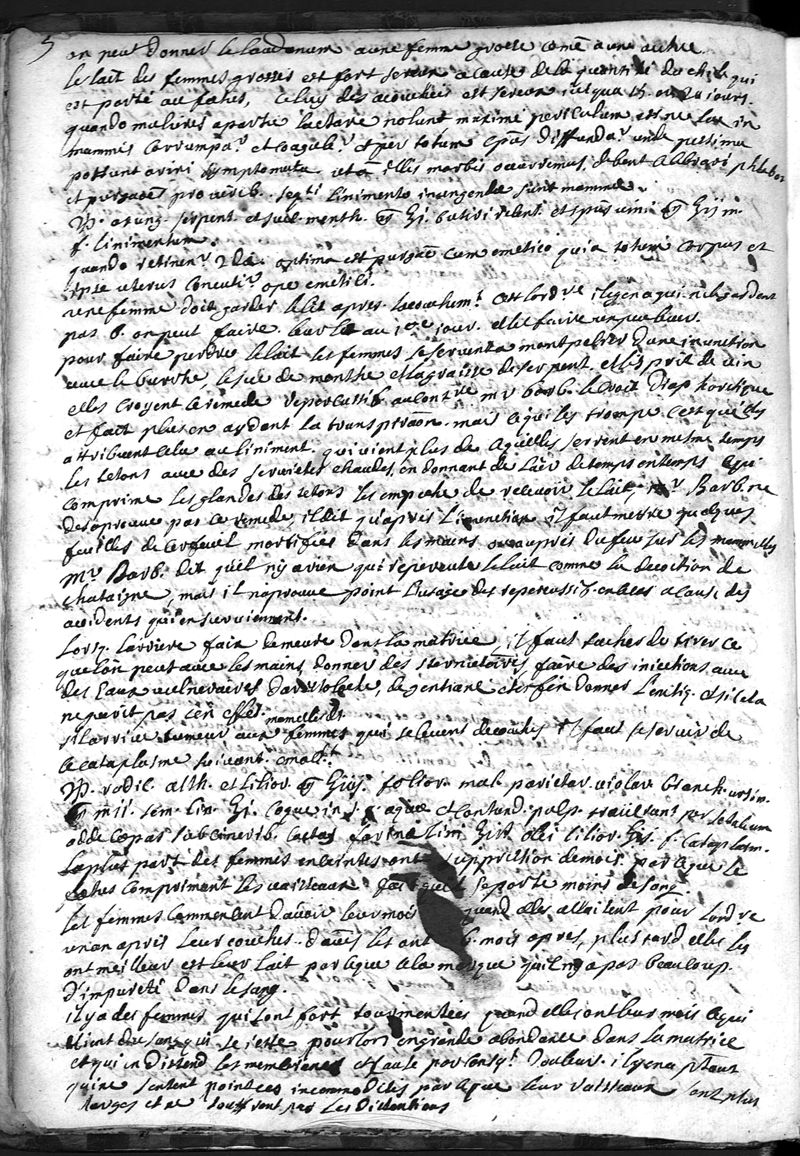 5
on peut donner le laudanum a une femme grosse comē a une autre
le lait des femmes grosses est fort sereux a cause de la quantité du chile qui
est porté au fœtus, celuy des acouchées est sereux jusqua 15. ou 20 jours.
quando mulieres a partu lactare nolunt maximé periculum est ne lac in
mammis corrumpaʳ. et coaguleʳ. et per totum diffundaʳ unde pessima
possunt oriri symptomata
et purgaōē pro linimento inungendæ sunt mammæ.
♃. axung. serpent. et succ. menth. butiri recent. et spūs vini
f. linimentum.
quando optima est purgaō cum emetico quia totum corpus et
ipse uterus concutiʳ ope emetici.
une femme doit garder le lit apres lacouchemᵗ. il y en a qui ne le gardent
pas 8. on peut faire leur lit au jour. et le faire un peu lever.
pour faire perdre le lait les femmes se servent a montpelier d'une inunction
avec le burrhe, le suc de menthe et la graisse de serpent, et l'esprit de vin
elles croyent le remede repercussif. au contʳᵉ mʳ barb. le croit diaphoretique
et fait plus en aydant la transpiraōn. mais ce qui les trompe c'est qu'elles
attribuent cela au liniment. qui vient plus de ce quelles serrent en mesme temps
les tetons avec des serviettes chaudes, en donnant de lair de temps en temps ce qui
comprime les glandes des tetons les empeche de recevoir le lait, mʳ. Barb. ne
desaprouve pas ce remede, il dit qu'apres l'inunction il faut mettre quelques
feuilles de cerfeuil mortifiées dans les mains ou aupres du feu sur les mammelles
Mʳ. Barb. dit quil n'y a rien qui repercute le lait comme la decoction de
chataigne, mais il n'aprouve point l'usage des repercussifs a cause des
accidents qui en surviennent.
Lorsq. larriere faix demeure dans la matrice, il faut tacher de tirer ce
que lon peut avec les mains, donner des sternutatoires, faire des injections avec
des Eaux vulneraires d'aristoloche, de gentiane et enfin donner et si cela
ne
sil arrive tumeur aux mamelles des femmes qui relevent de couches il faut se servir de
ce cataplasme suivant. emollᵗ.
♃. radic. alth. et lilior. folior. malv. parietar. violar. branch. ursin.
sem. lin. coque in aquæ et contund. pulp. per setaceum
adde cepas sub cinerib. coctas farinæ lini olei lilior. f. cataplasm.
la plus part des femmes enceintes ont suppression de mois, par ce que le
fœtus comprimant les vaisseaux fait quil se porte moins de sang.
les femmes commencent d'avoir leur mois quand elles allaitent pour lordʳᵉ
un an apres leur couches. dautres les ont 6. mois apres, plus tard elles les
ont meilleur est leur lait par ce que cela marque quil n'y a pas beaucoup.
d'impureté dans le sang.
il y a des femmes qui sont fort tourmentées quand elle ont leur mois ce qui
vient du sang qui se jette pour lors en grande abondance dans la matrice
et qui en distend les membranes et cause par conseqᵗ. douleur. il y en a plusʳˢ
qui ne sentent point ces incommodités par ce que leur vaisseaux sont plus
larges et ne souffrent pas les distentions